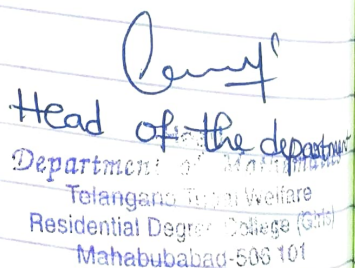 Head of the department
Department of Mathematics
Telangana Tribal Welfare
Residential Degree College (Girls)
Mahabubabad-506 101